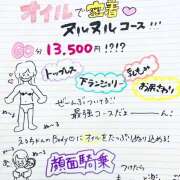 オイルで密着♡
ヌルヌルコース!!!
60分 13,500円!?!?
トップレス
下ランジェリー
お尻さわり
ぬ〜る
ぜーんぶついてる!!
最強コースだよ
ぬ〜る
のBodyにオイルをたっぷりぬり込める!
顔面騎乗
ついてたら